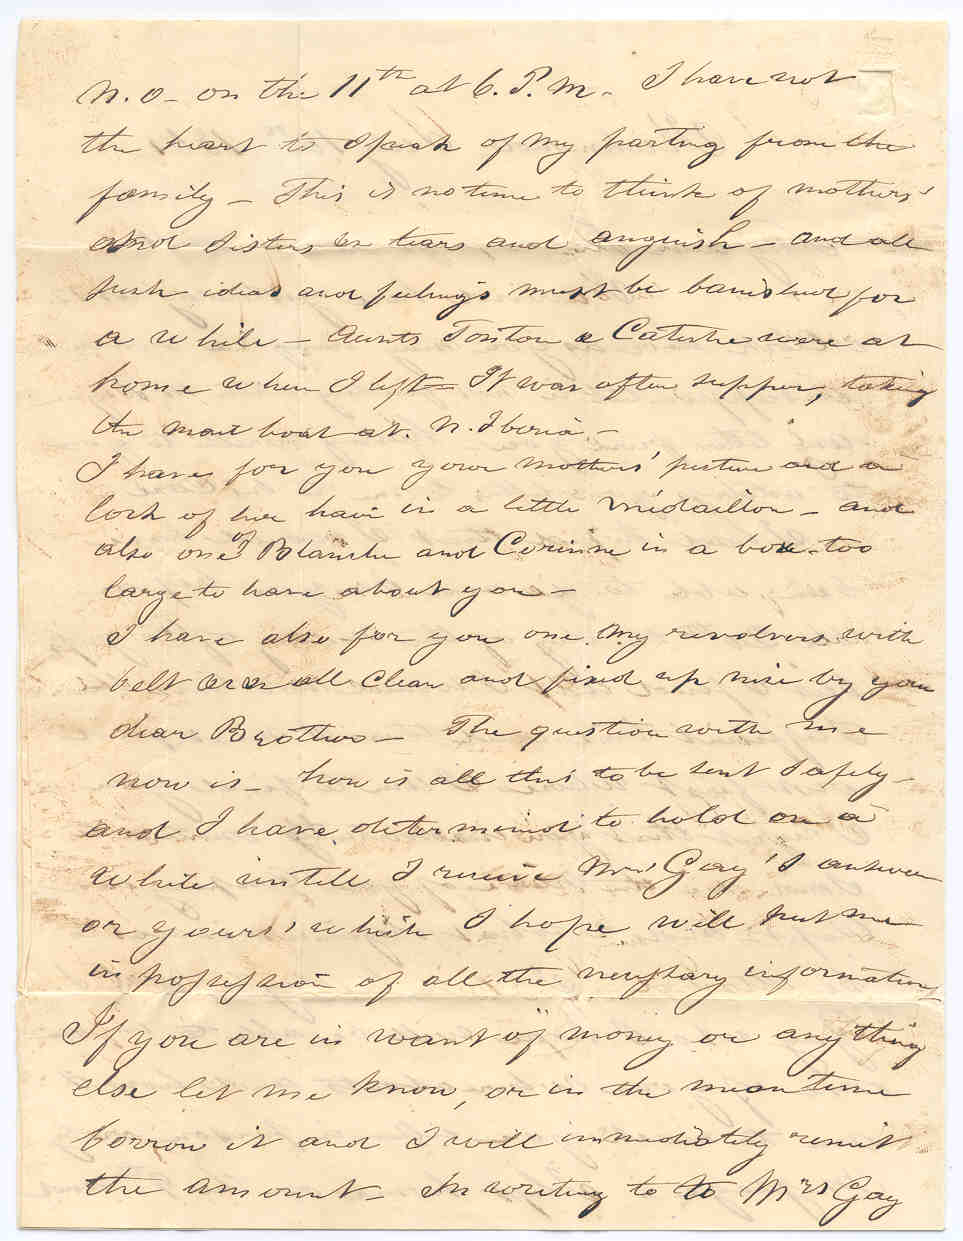 N. O - on the 11th at 6. P. M - I have not
the heart to speak of my parting from the
family - This is no time to think of mothers'
and Sisters in tears and anguish - and all
such ideas and feelings must be banished for
a while - Aunts Tonton & Catiche were at
home when I left = It was after supper, taking
the mail boat at. N. Iberia -
I have for you your mothers' picture and a
lock of her hair in a little médaillon - and
also one of Blanche and Corinne in a box - too
large to have about you -
I have also for you one my revolvers with
belt all clean and fixed up nise by your
dear Brothers - The question with me
now is - how is all this to be sent safely -
and I have determined to hold on a
while untill I receive Mrs' Gay's answer
or yours' which I hope will put me
in possession of all the necessary information
If you are in want of money or anything
else let me know, or in the mean time
borrow it and I will immediately remit
the amount - In writing to to Mrs Gay